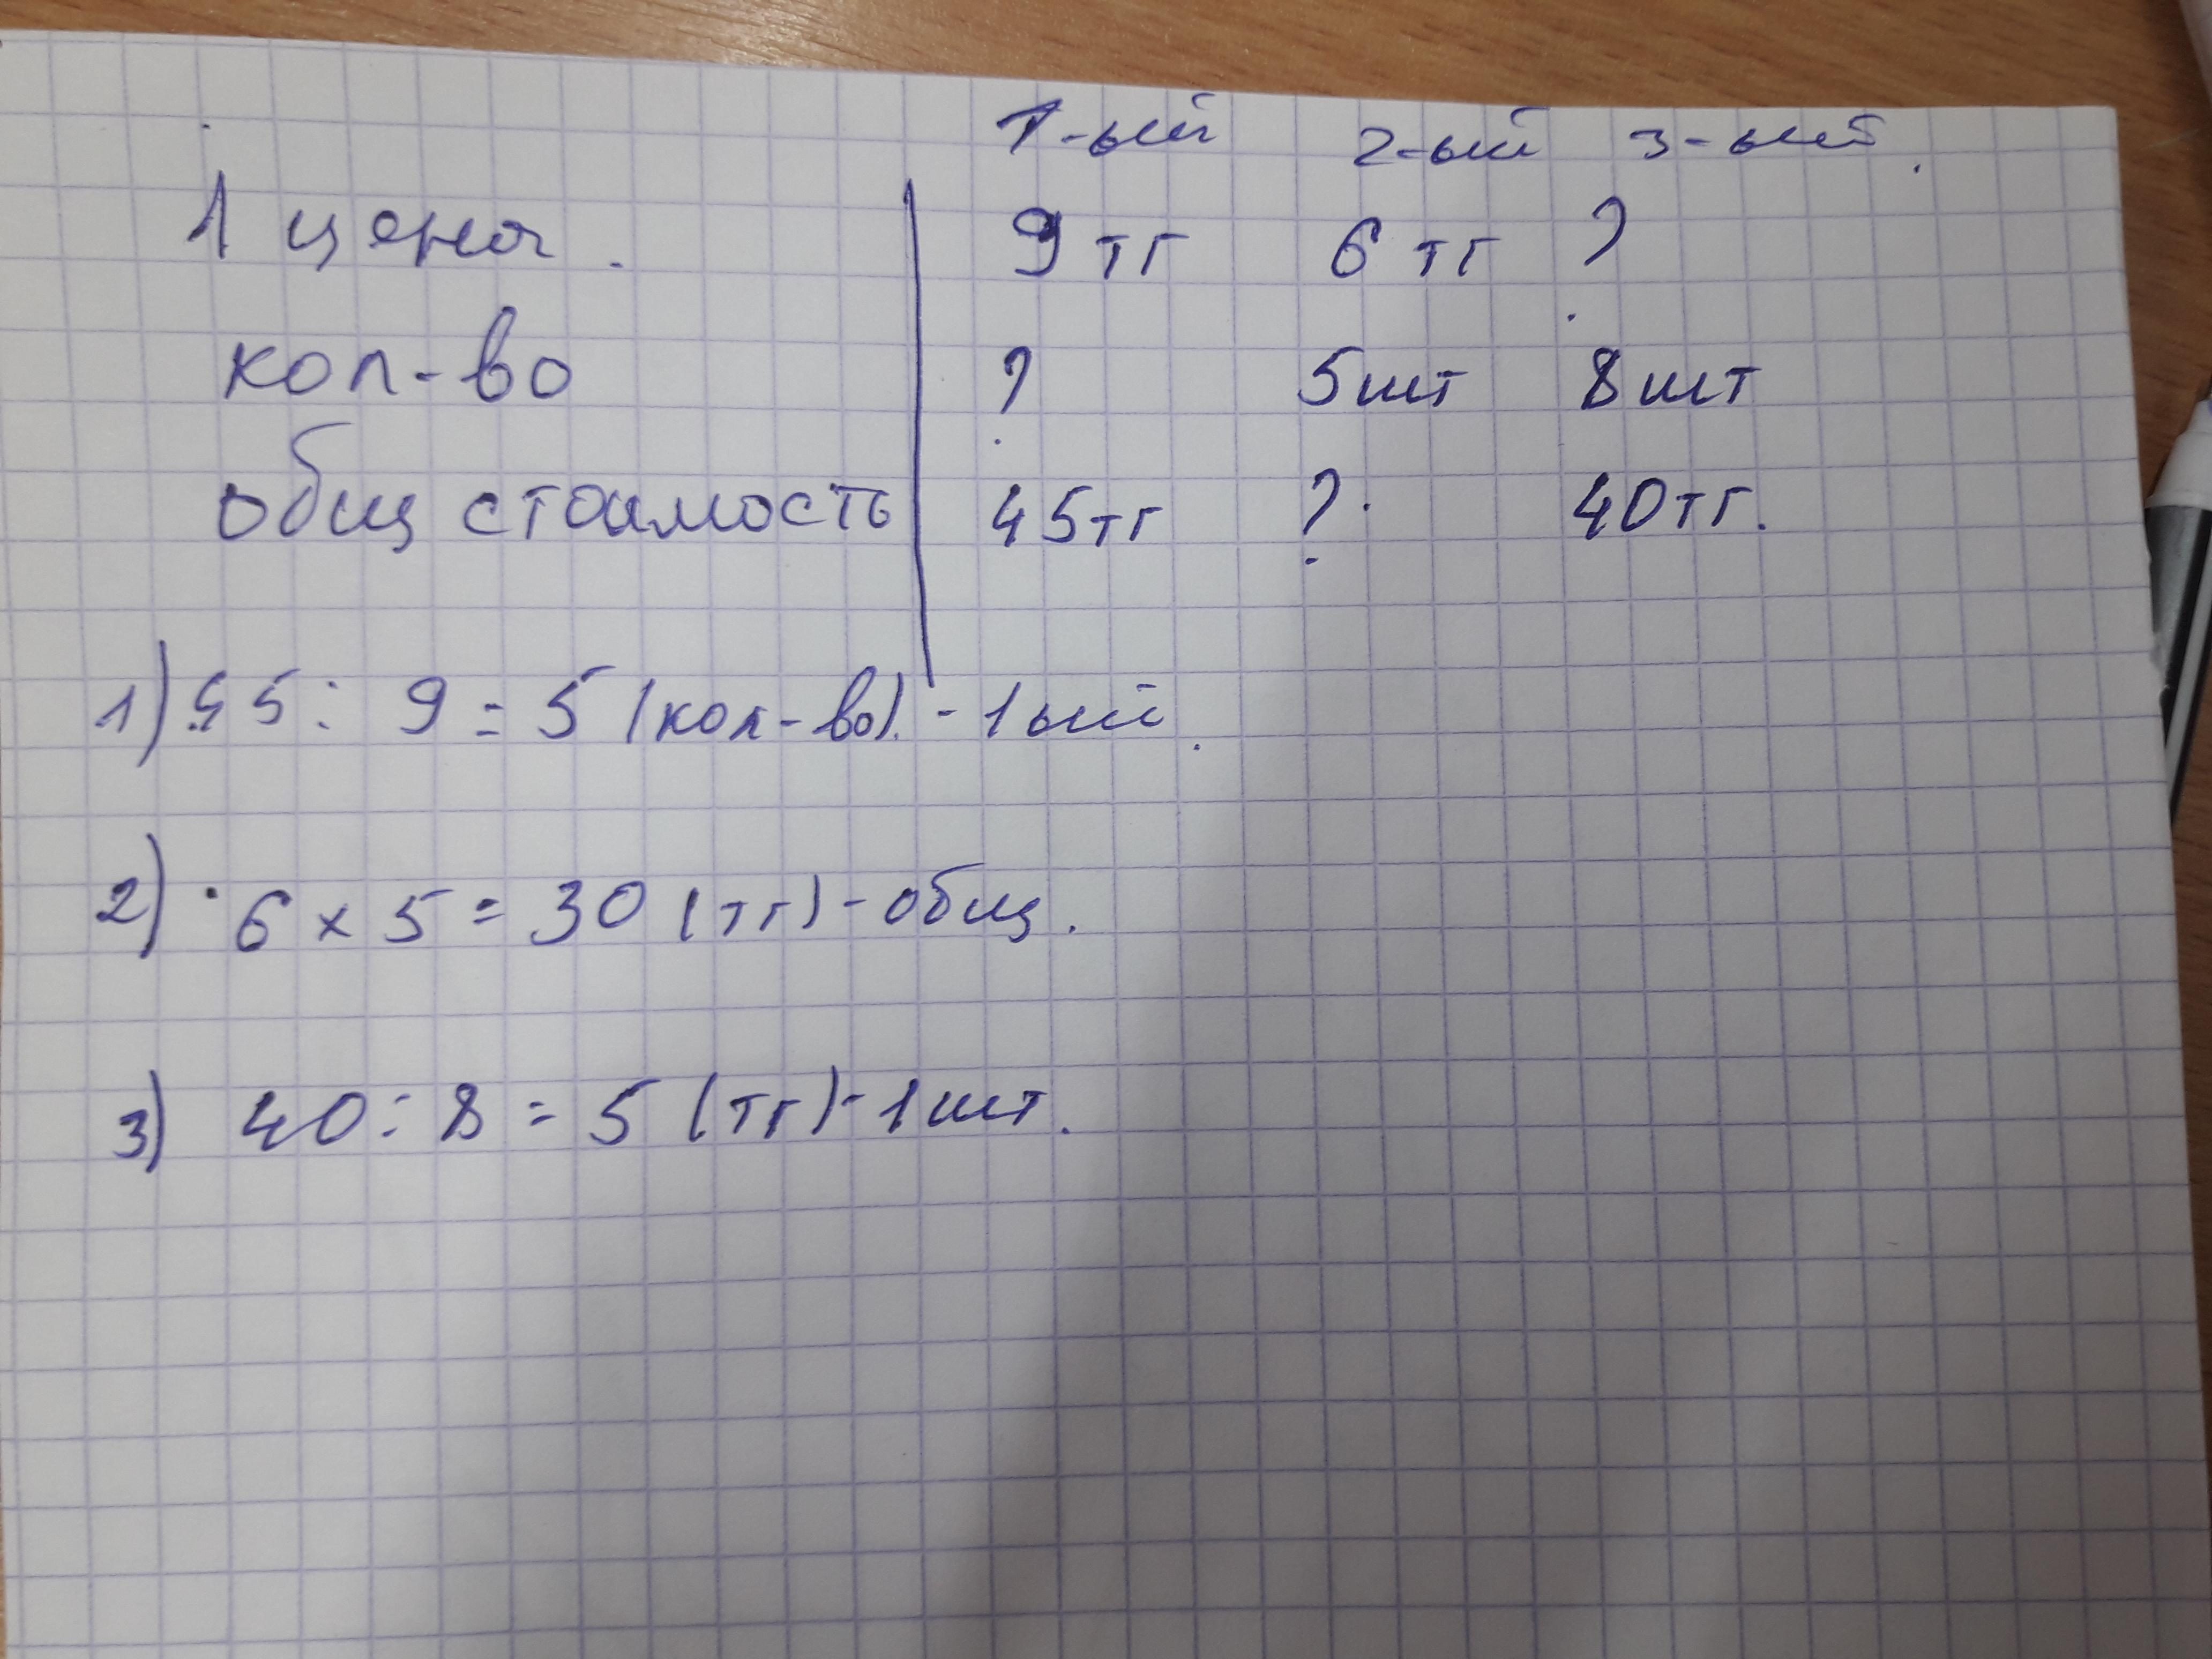 1-ый 2-ый 3-ый.
1 цена. 9 тг 6 тг ?
кол-во ? 5шт 8шт
общ стоимость 45тг ? 40тг.
1) 45 : 9 = 5 (кол-во). - 1ый.
2) 6 x 5 = 30 (тг) - общ.
3) 40 : 8 = 5 (тг) - 1шт.